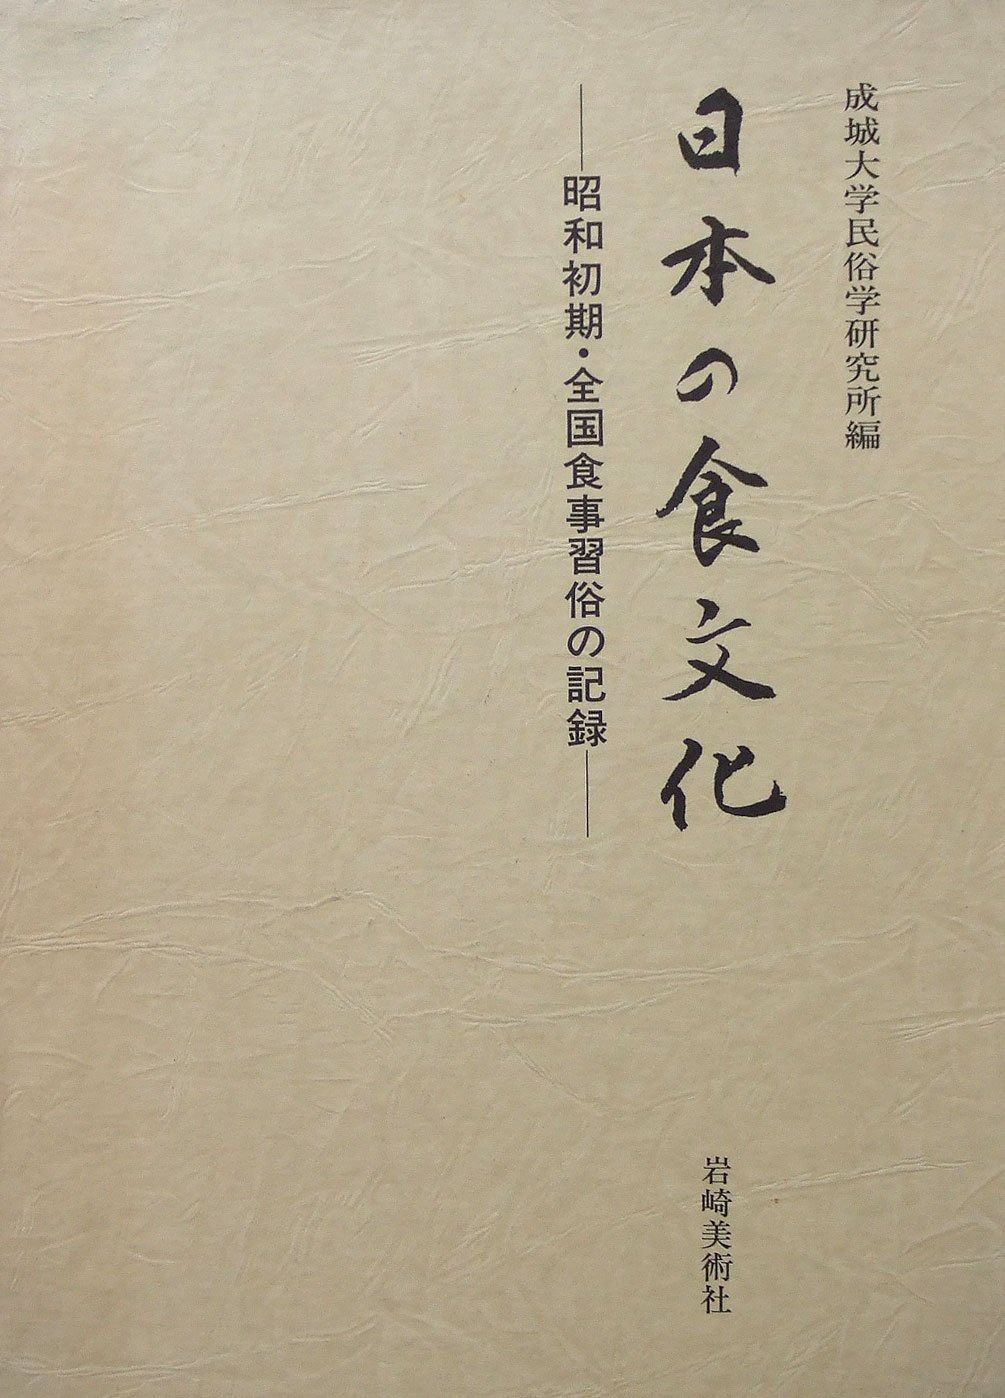 成城大学民俗学研究所編
日本の食文化
――昭和初期・全国食事習俗の記録――
岩崎美術社